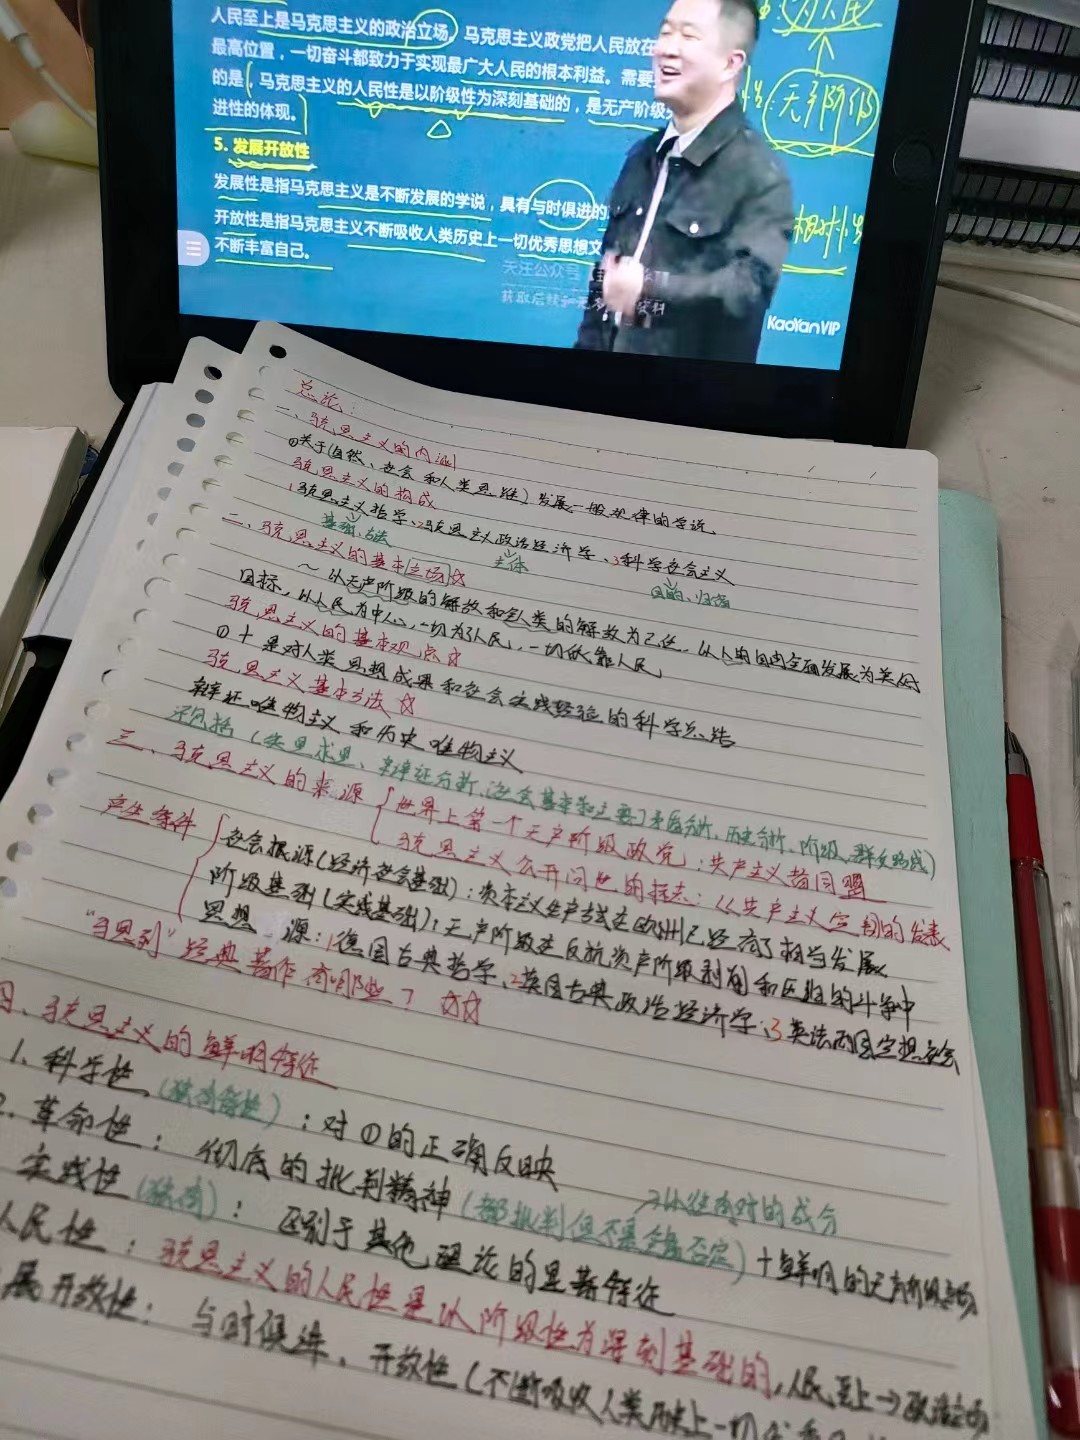 人民至上是马克思主义的政治立场。马克思主义政党把人民放在
最高位置，一切奋斗都致力于实现最广大人民的根本利益。需要
的是，马克思主义的人民性是以阶级性为深刻基础的，是无产阶级
进性的体现。
无产阶级
5. 发展开放性
发展性是指马克思主义是不断发展的学说，具有与时俱进的
开放性是指马克思主义不断吸收人类历史上一切优秀思想文
不断丰富自己。
关注公众号
获取后续和更多 资料
KaoYanVIP
总论：
一、马克思主义的内涵
①关于(自然、社会和人类思维)发展一般规律的学说
马克思主义的构成
1马克思主义哲学、2马克思主义政治经济学、3科学社会主义
基础、方法 主体 目的、归宿
二、马克思主义的基本立场☆
～以无产阶级的解放和全人类的解放为己任，以人的自由全面发展为美好
目标，以人民为中心，一切为了人民，一切依靠人民
马克思主义的基本观点☆
①+是对人类思想成果和社会实践经验的科学总结
马克思主义基本方法☆
辩证唯物主义和历史唯物主义
还包括(实事求是、辩证分析、社会基本和主要矛盾分析、历史分析、阶级、群众路线)
三、马克思主义的来源
世界上第一个无产阶级政党：共产主义者同盟
马克思主义公开问世的标志：《共产主义宣言》的发表
产生条件
社会根源(经济社会基础)：资本主义生产方式在欧洲已经有了相当发展
阶级基础(实践基础)：无产阶级在反抗资产阶级剥削和压迫的斗争中
思想 源：1德国古典哲学、2英国古典政治经济学、3英法两国空想社会
"马恩列"经典著作有哪些？☆☆
四、马克思主义的鲜明特征
1. 科学性(独有特性)：对①的正确反映
2. 革命性：彻底的批判精神(都批判但不是全盘否定)+鲜明的无产阶级立场
实践性(独有)：区别于其他理论的显著特征
人民性：马克思主义的人民性是以阶级性为深刻基础的，人民至上→政治立场
展开放性：与时俱进、开放性(不断吸收人类历史上一切